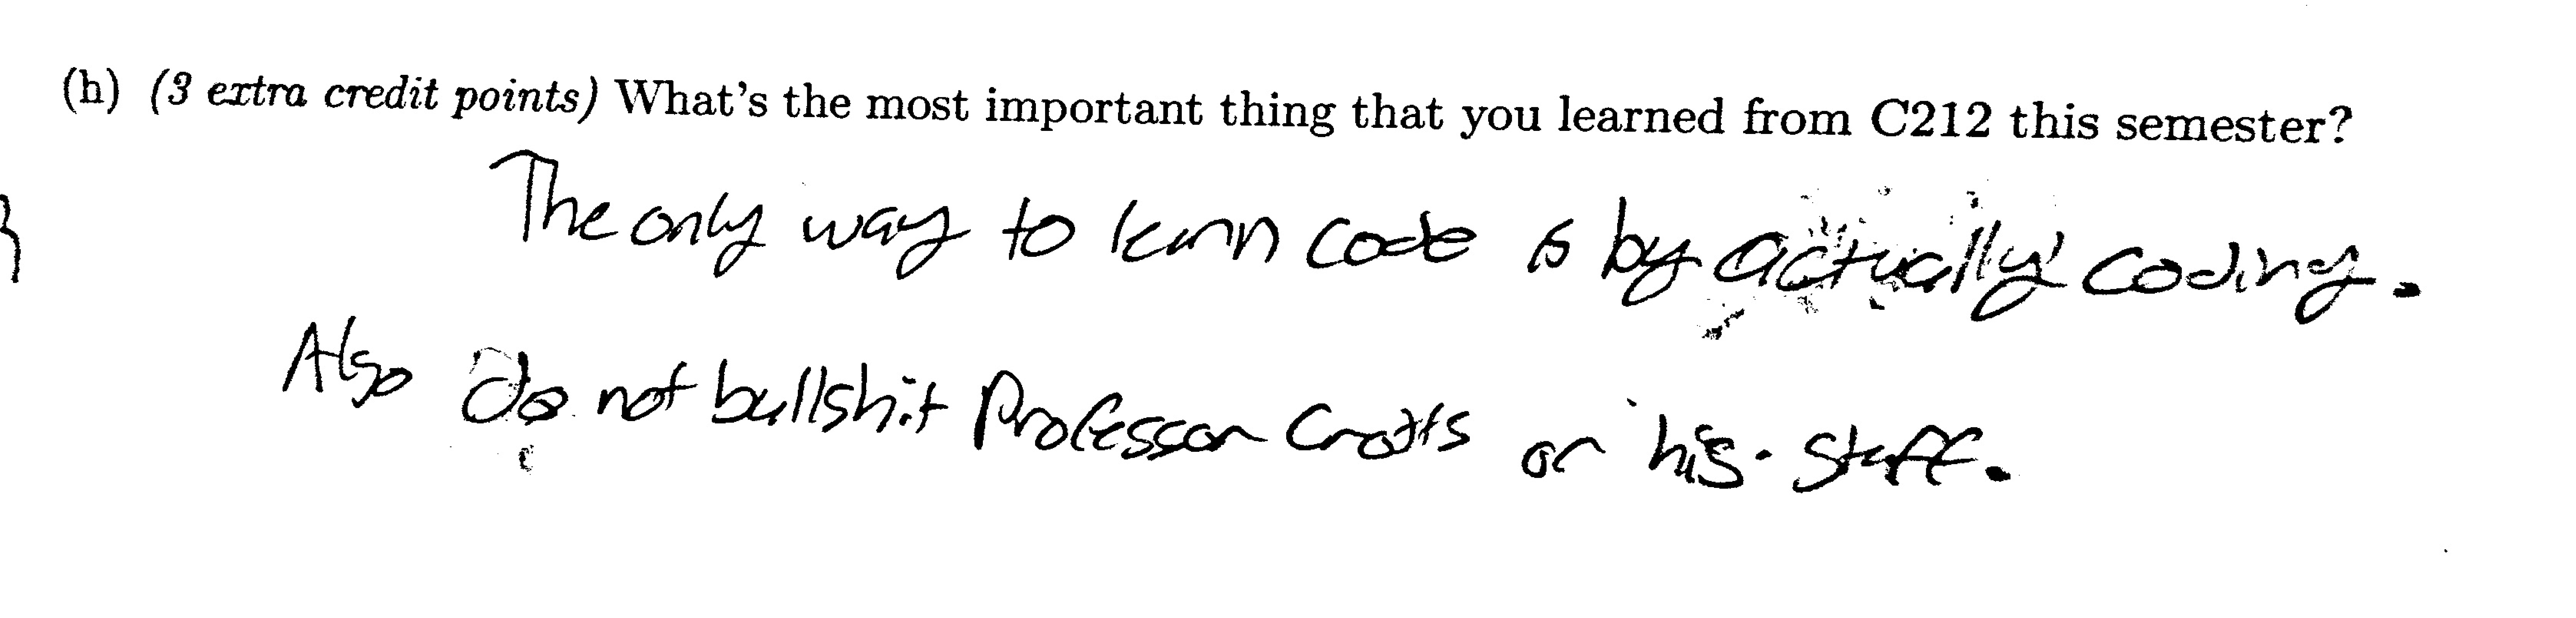 (h) (3 extra credit points) What's the most important thing that you learned from C212 this semester?
The only way to learn code is by actually coding.
Also do not bullshit Professor Crotts or his staff.